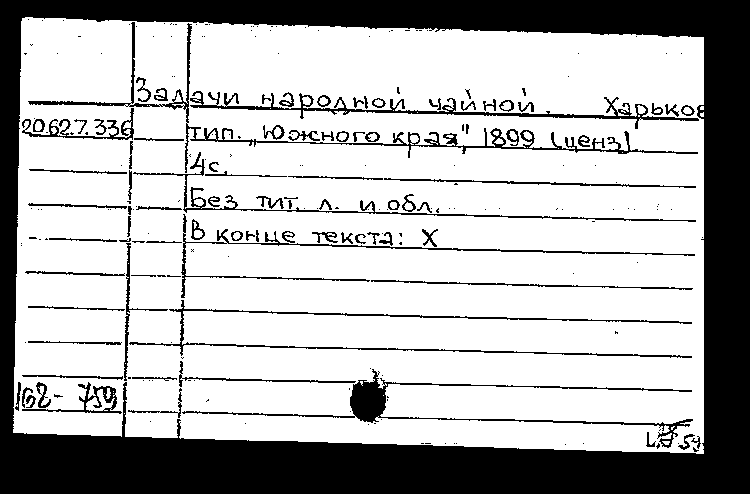 Задачи народной чайной. Харьков
20.627.336 тип. „Южного края", 1899 (ценз).
4с.
Без тит. л. и обл.
В конце текста: X
162- 759